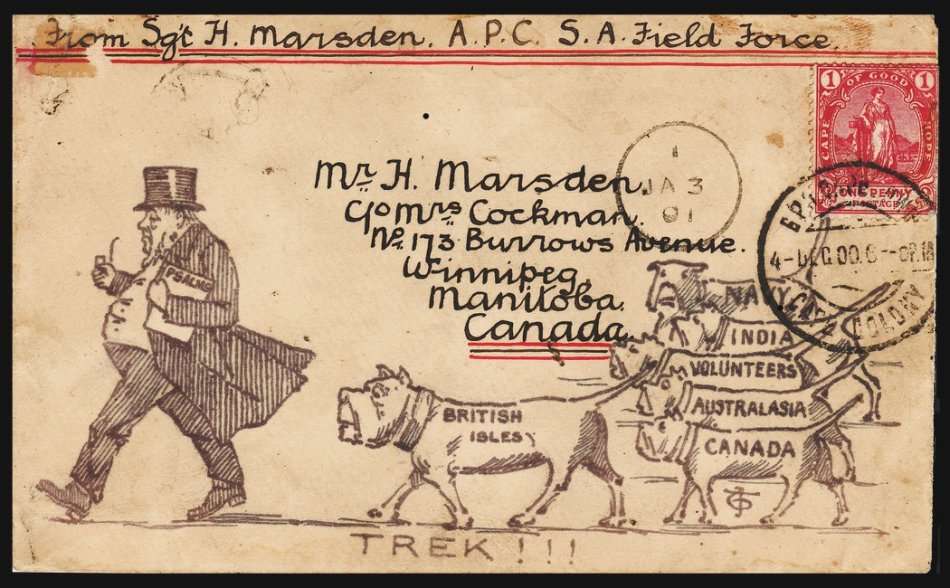 From Sgt H. Marsden. A.P.C. S.A. Field Force.
1 OF GOOD 1
CAPE
HOPE
ONE PENNY
POSTAGE
Mr. H. Marsden.
c/o Mrs Cockman.
No. 173 Burrows Avenue.
Winnipeg
Manitoba.
Canada.
1
JA 3
01
COLONY
PSALMS
NAVY
INDIA
VOLUNTEERS
AUSTRALASIA
CANADA
BRITISH
ISLES
TREK!!!